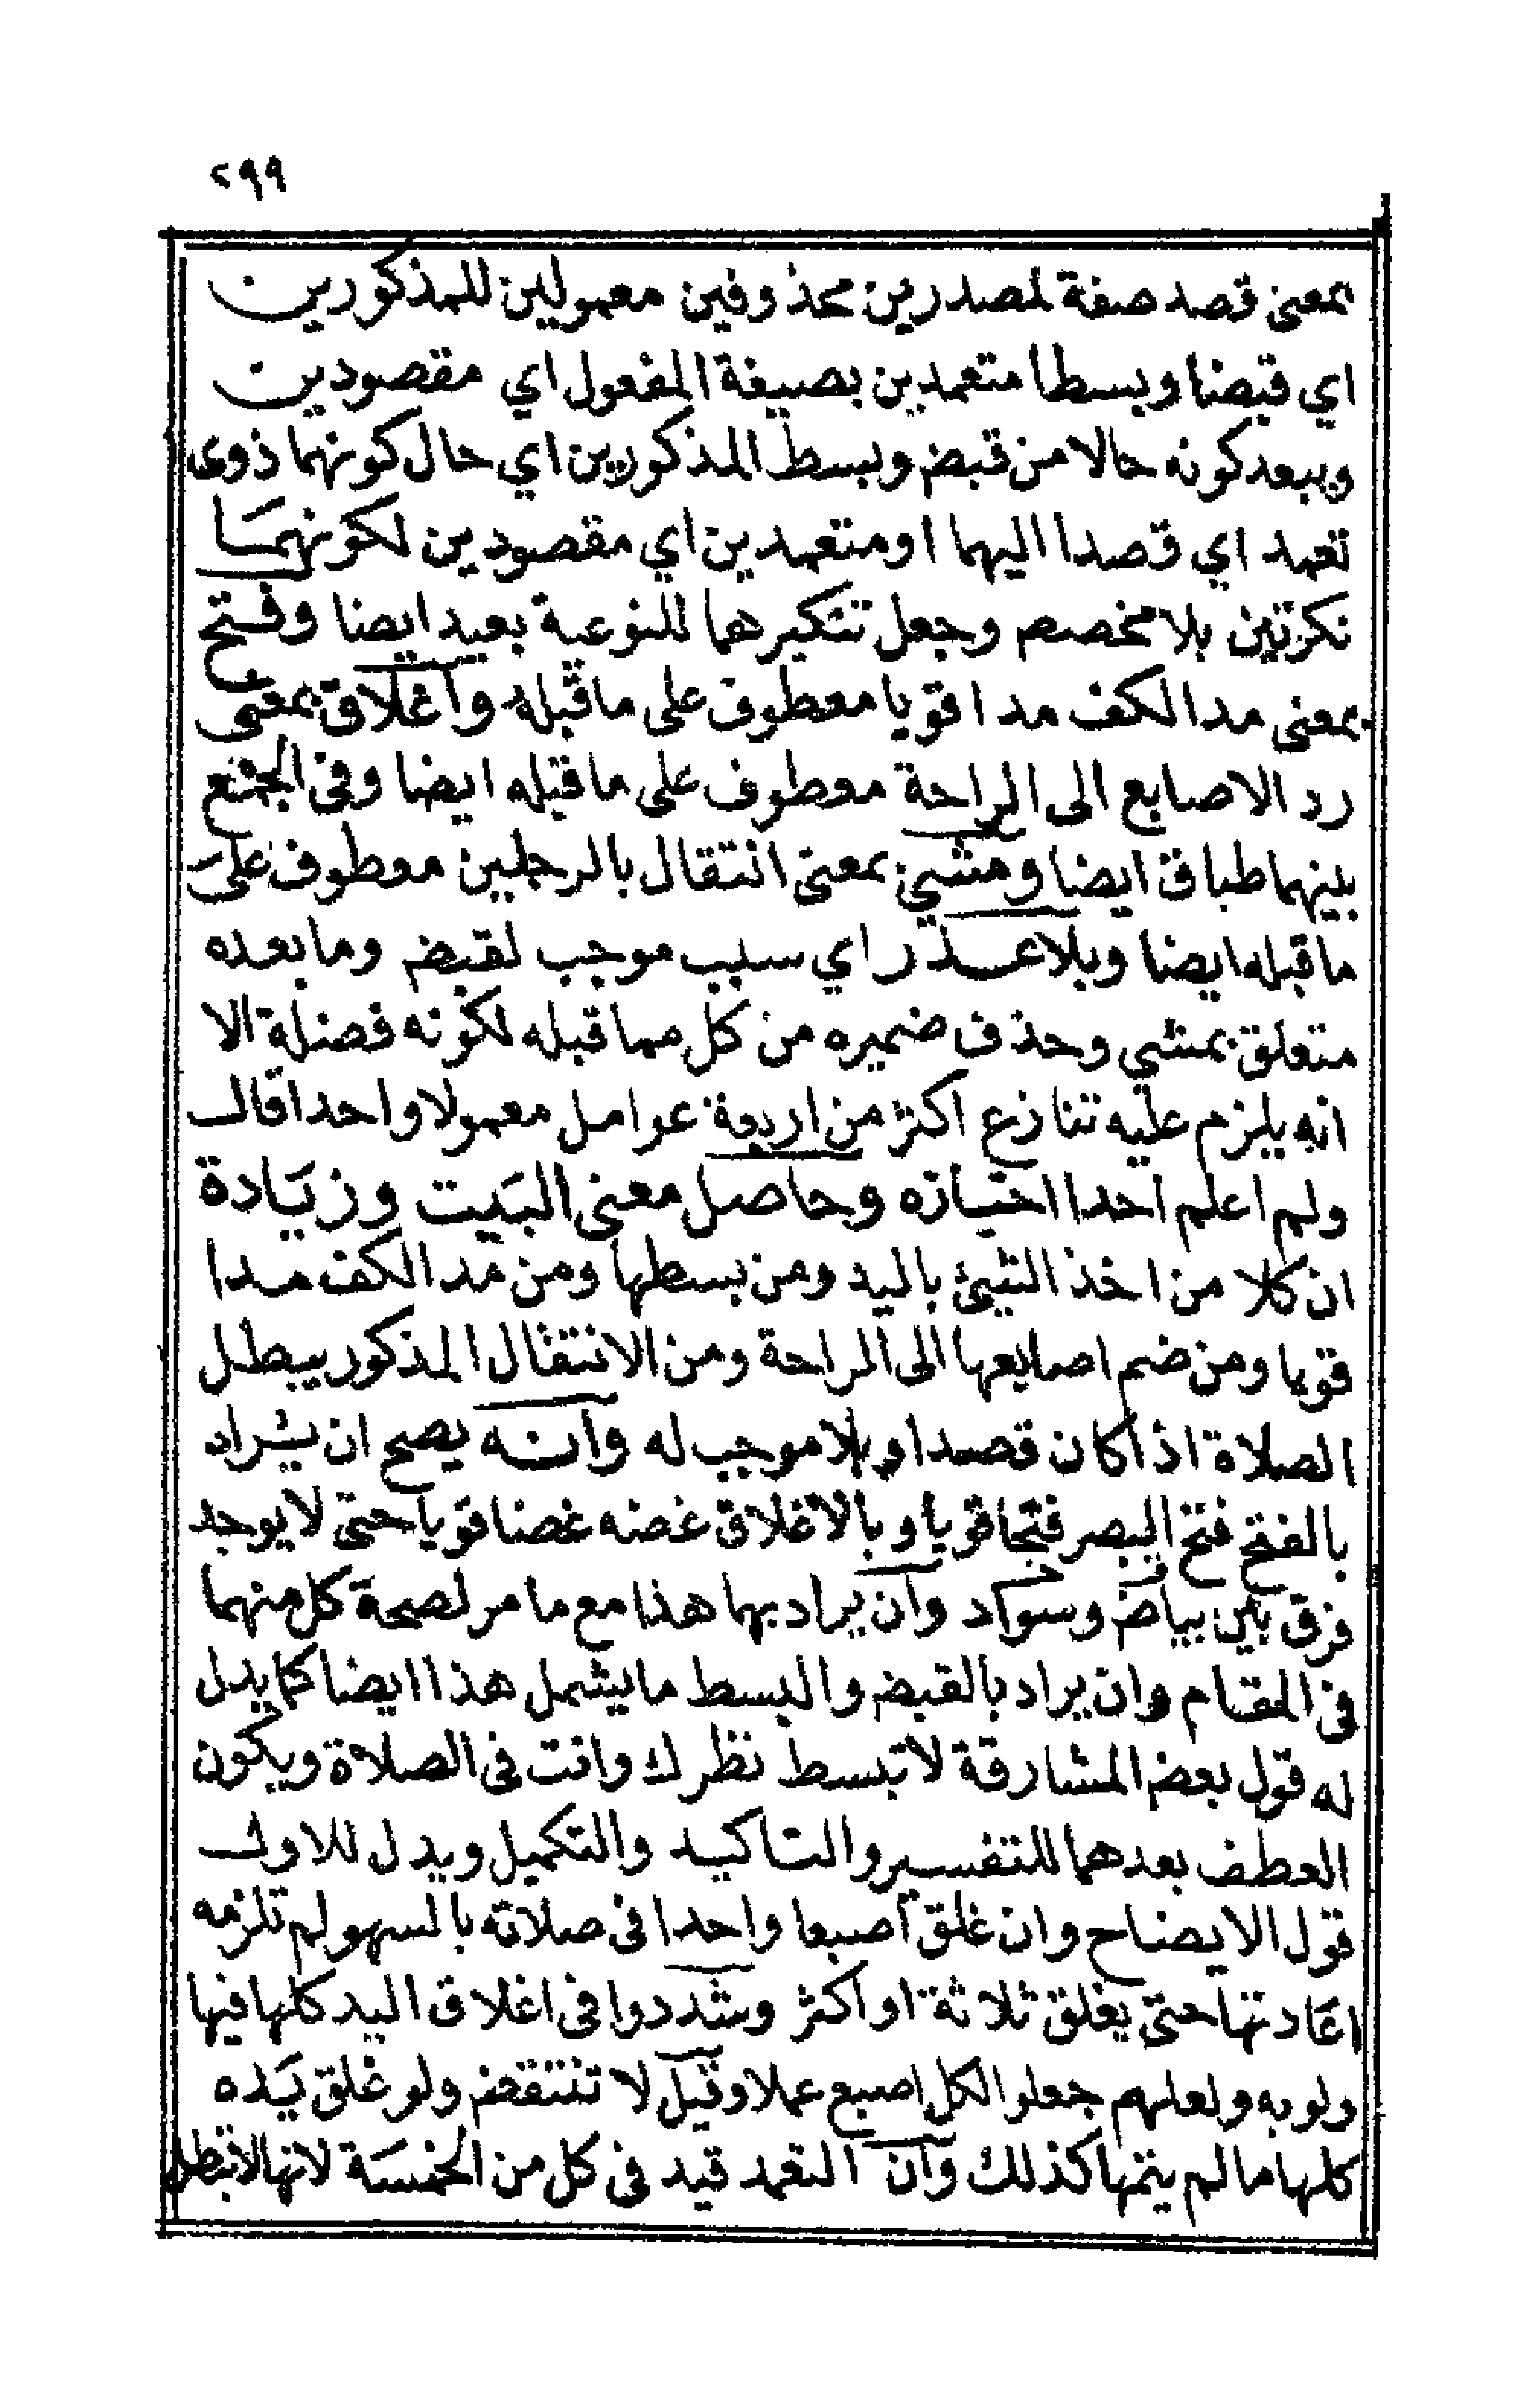 ٢٩٩
بمعنى قصد صفة لمصدرين محذوفين معمولين للمذكورين
اي قبضا وبسطا متعمدين بصيغة المفعول اي مقصودين
ويبعد كونه حالا من قبض وبسط المذكورين اي حال كونهما ذوى
تعمد اي قصدا اليهما او متعمدين اي مقصودين لكونهما
نكرتين بلا مخصص وجعل تنكيرهما للنوعية بعيد ايضا وفتح
بمعنى مد الكف مدا قويا معطوف على ما قبله واغلاق بمعنى
رد الاصابع الى الراحة معطوف على ما قبله ايضا وفى الجمع
بينهما طباق ايضا ومشي بمعنى انتقال بالرجلين معطوف على
ما قبله ايضا وبلا عذر اي سبب موجب لقبض وما بعده
متعلق بمشي وحذف ضميره من كل مما قبله لكونه فضلة الا
انه يلزم عليه تنازع اكثر من اربعة عوامل معمولا واحدا قال
ولم اعلم احدا اختاره وحاصل معنى البيت وزيادة
ان كلا من اخذ الشيئ باليد ومن بسطها ومن مد الكف مدا
قويا ومن ضم اصابعها الى الراحة ومن الانتقال المذكور يبطل
الصلاة اذا كان قصدا وبلا موجب له وانه يصح ان يراد
بالفتح فتح البصر فتحا قويا وبالاغلاق غضه غضا قويا حتى لا يوجد
فرق بين بياض وسواد وان يراد بهما هذا مع ما مر لصحة كل منهما
فى المقام وان يراد بالقبض والبسط ما يشمل هذا ايضا كما يدل
له قول بعض المشارقة لا تبسط نظرك وانت فى الصلاة ويكون
العطف بعدهما للتفسير والتاكيد والتكميل ويدل للاول
قول الايضاح وان غلق اصبعا واحدا فى صلاته بالسهو لم تلزمه
اعادتها حتى يغلق ثلاثة او اكثر وشددوا فى اغلاق اليد كلها فيها
ولو به ولعلهم جعلوا لكل اصبع عملا وقيل لا تنتقض ولو غلق يده
كلها ما لم يتمها كذلك وان التعمد قيد فى كل من الخمسة لانها لا تبطل